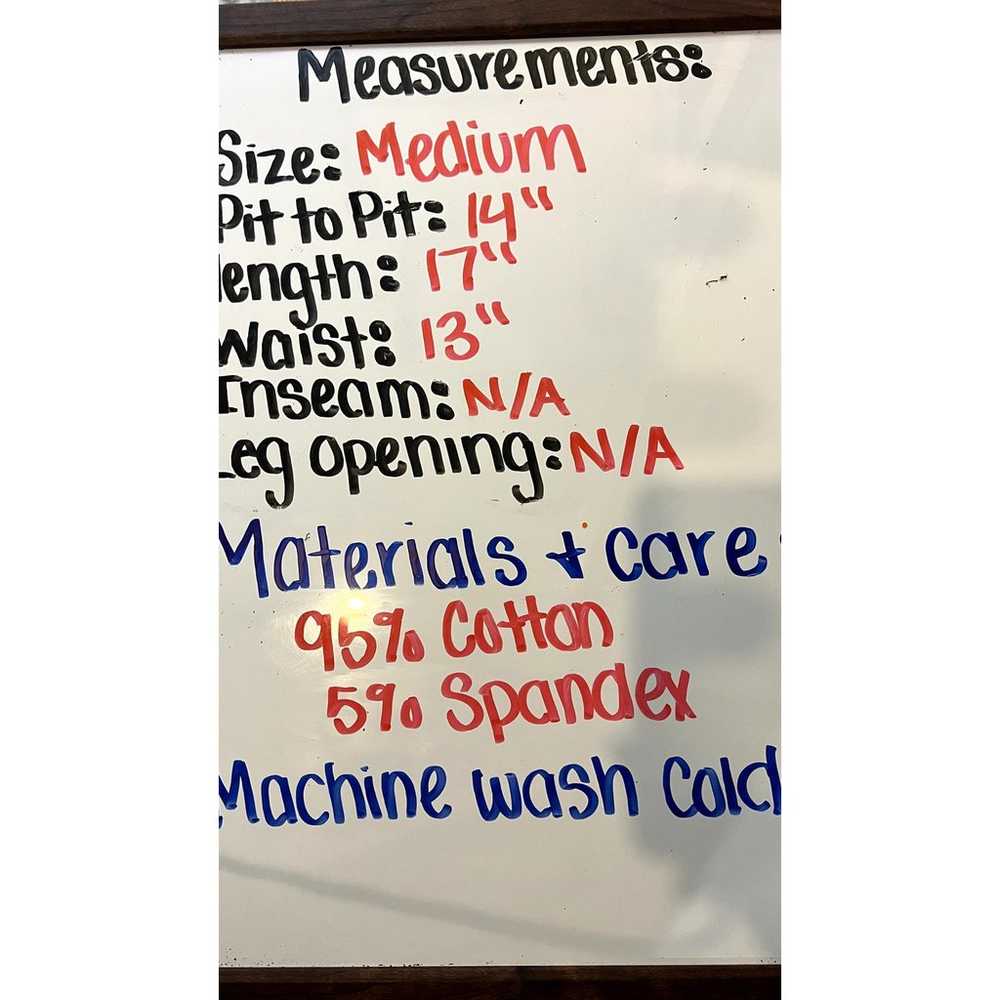 Measurements:
Size: Medium
Pit to Pit: 14"
length: 17"
Waist: 13"
Inseam: N/A
Leg opening: N/A
Materials + Care:
95% Cotton
5% Spandex
Machine wash Cold